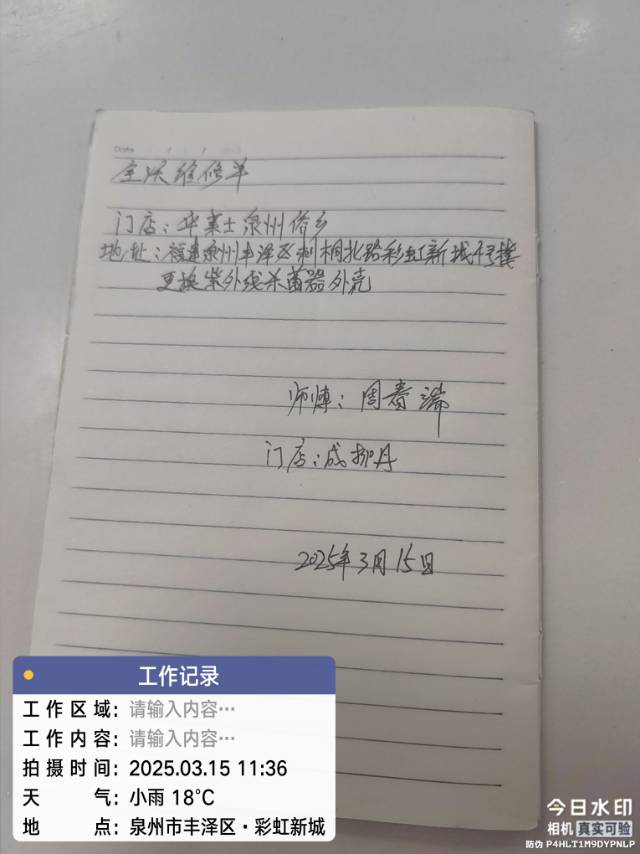 Date
全沃维修单
门店：华莱士泉州侨乡
地址：福建泉州丰泽区刺桐北路彩虹新城4号楼
更换紫外线杀菌器外壳
师傅：周春瑞
门店：成柳丹
2025年3月15日
工作记录
工作区域：请输入内容…
工作内容：请输入内容…
拍摄时间：2025.03.15 11:36
天气：小雨 18℃
地点：泉州市丰泽区·彩虹新城
今日水印
相机 真实可验
防伪 P4HLT1M9DYPNLP